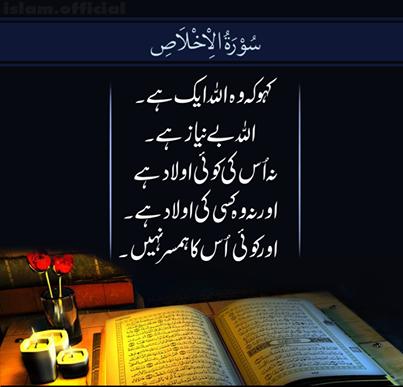 islam.official
سُوۡرَةُ الۡاِخۡلَاصِ
کہو کہ وہ اللہ ایک ہے۔
اللہ بے نیاز ہے۔
نہ اُس کی کوئی اولاد ہے
اور نہ وہ کسی کی اولاد ہے۔
اور کوئی اُس کا ہمسر نہیں۔